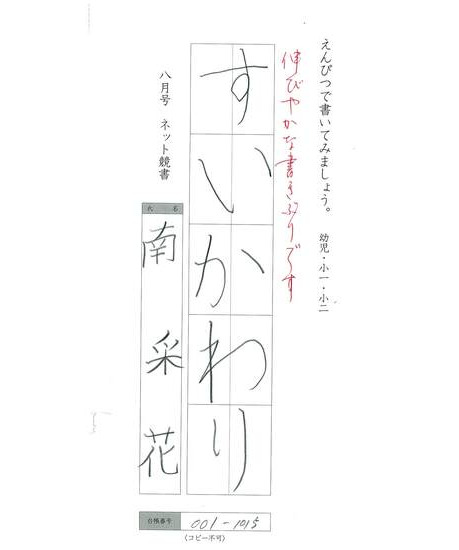 えんぴつで書いてみましょう。 幼児・小一・小二
伸びやかな書きぶりです
すいかわり
八月号 ネット競書
氏名
南采花
台帳番号 001-1015
(コピー不可)